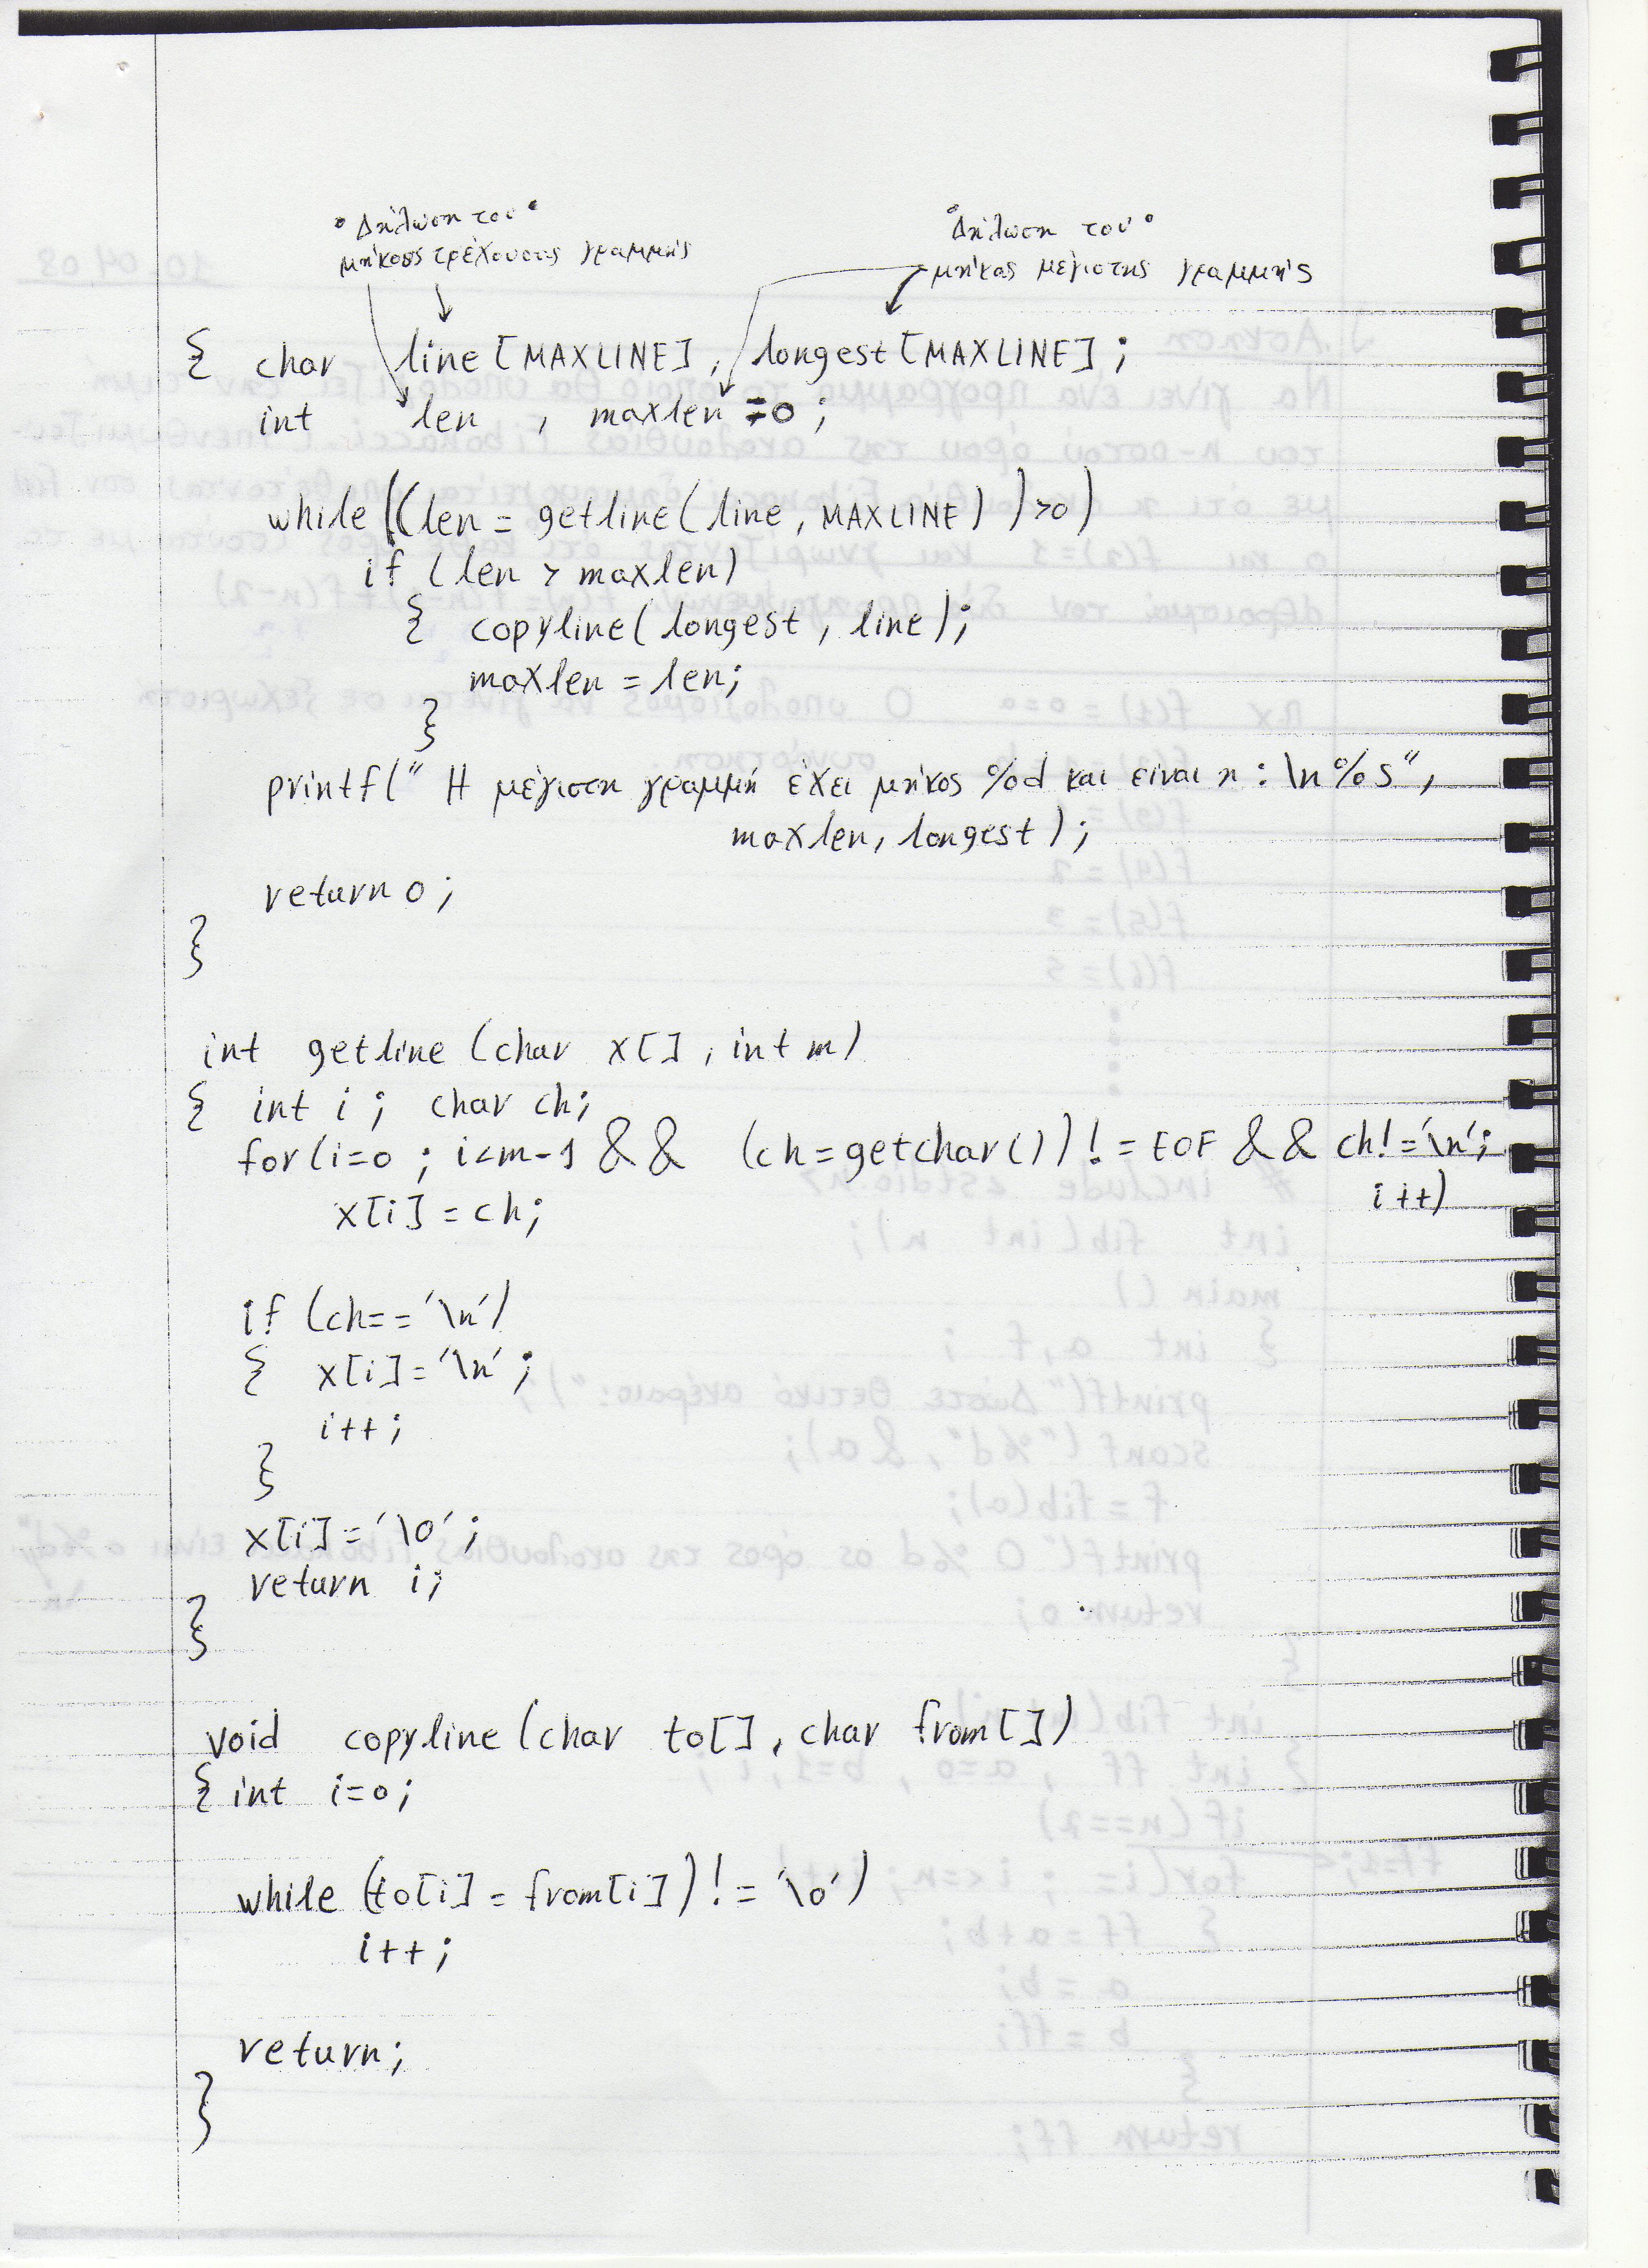 "Δήλωση του"
μήκους τρέχουσας γραμμής
"Δήλωση του"
μήκος μέγιστης γραμμής
{ char line[MAXLINE], longest[MAXLINE];
int len , maxlen =0;
while((len = getline(line, MAXLINE))>0)
if (len > maxlen)
{ copyline(longest, line);
maxlen = len;
}
printf(" Η μέγιστη γραμμή έχει μήκος %d και είναι η : \n%s",
maxlen, longest);
return 0;
}
int getline (char x[], int m)
{ int i; char ch;
for(i=0; i<m-1 && (ch=getchar())!=EOF && ch!='\n';
i++)
x[i]=ch;
if (ch=='\n')
{ x[i]='\n';
i++;
}
x[i]='\0';
return i;
}
void copyline(char to[], char from[])
{ int i=0;
while (to[i] = from[i])!='\0')
i++;
return;
}